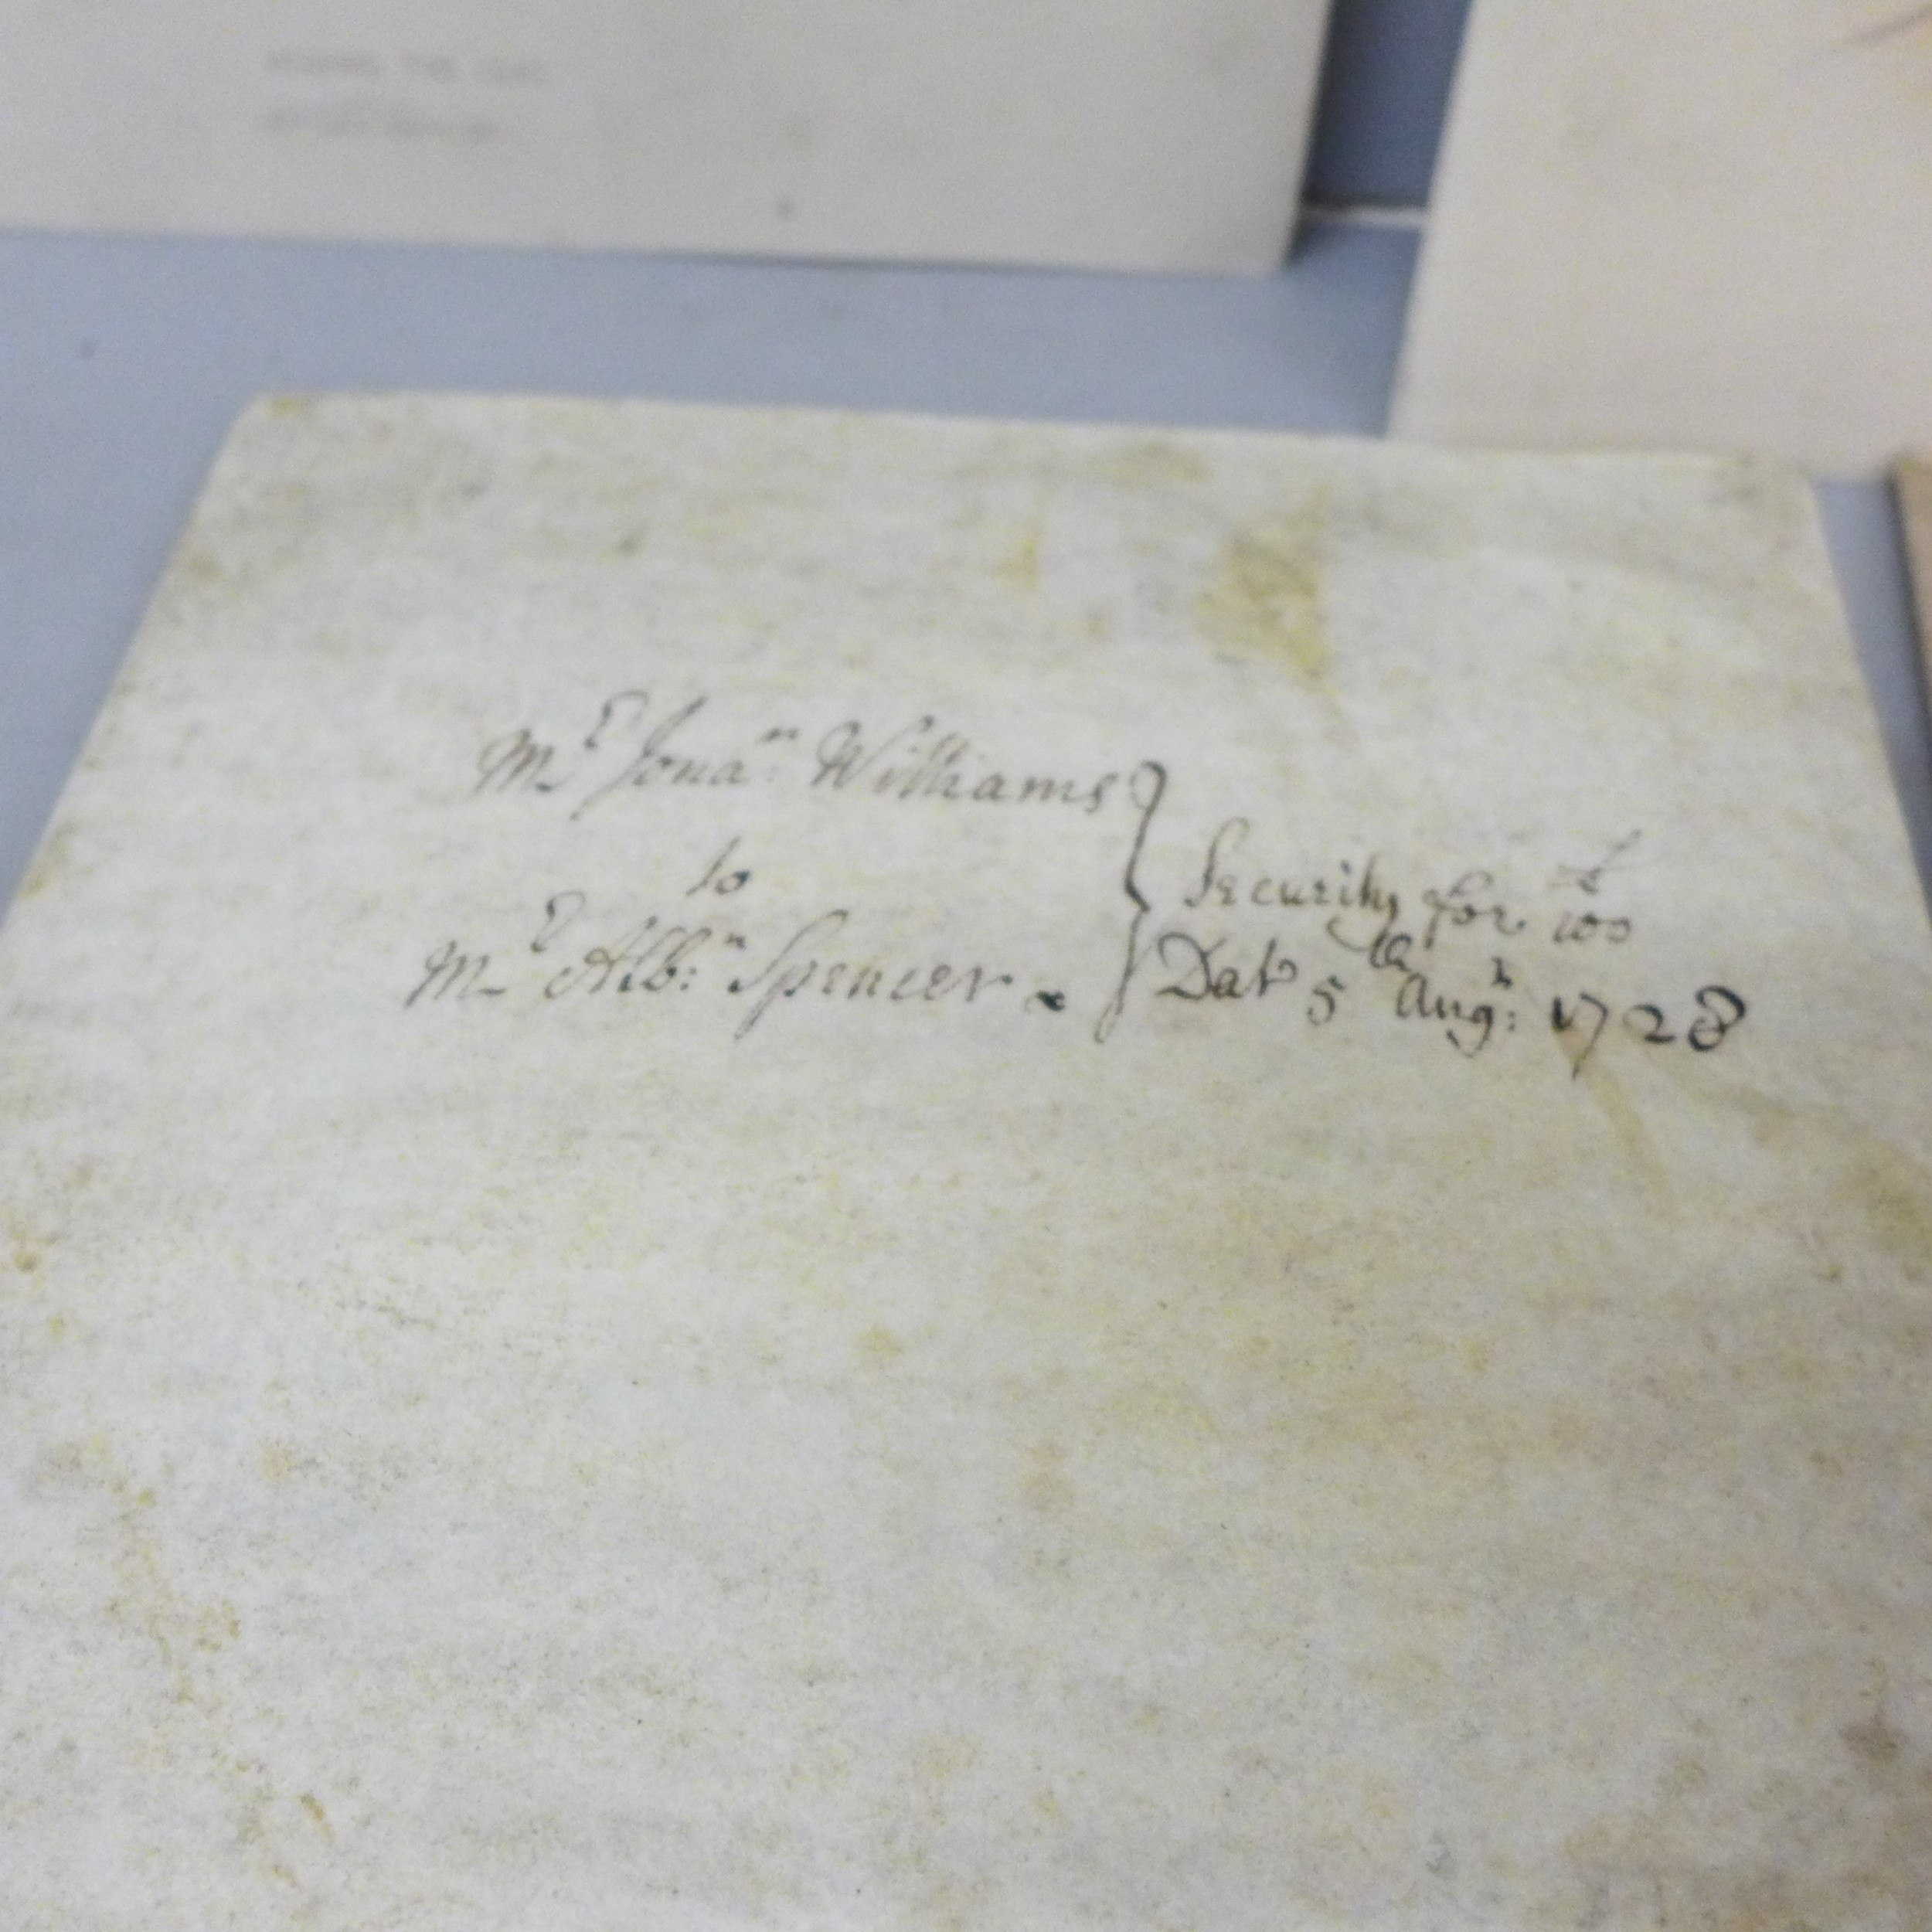 Mr Jonan: Williams
to
Mr Albn: Spencer
Security for £ 100
Dat 5th Augt: 1728